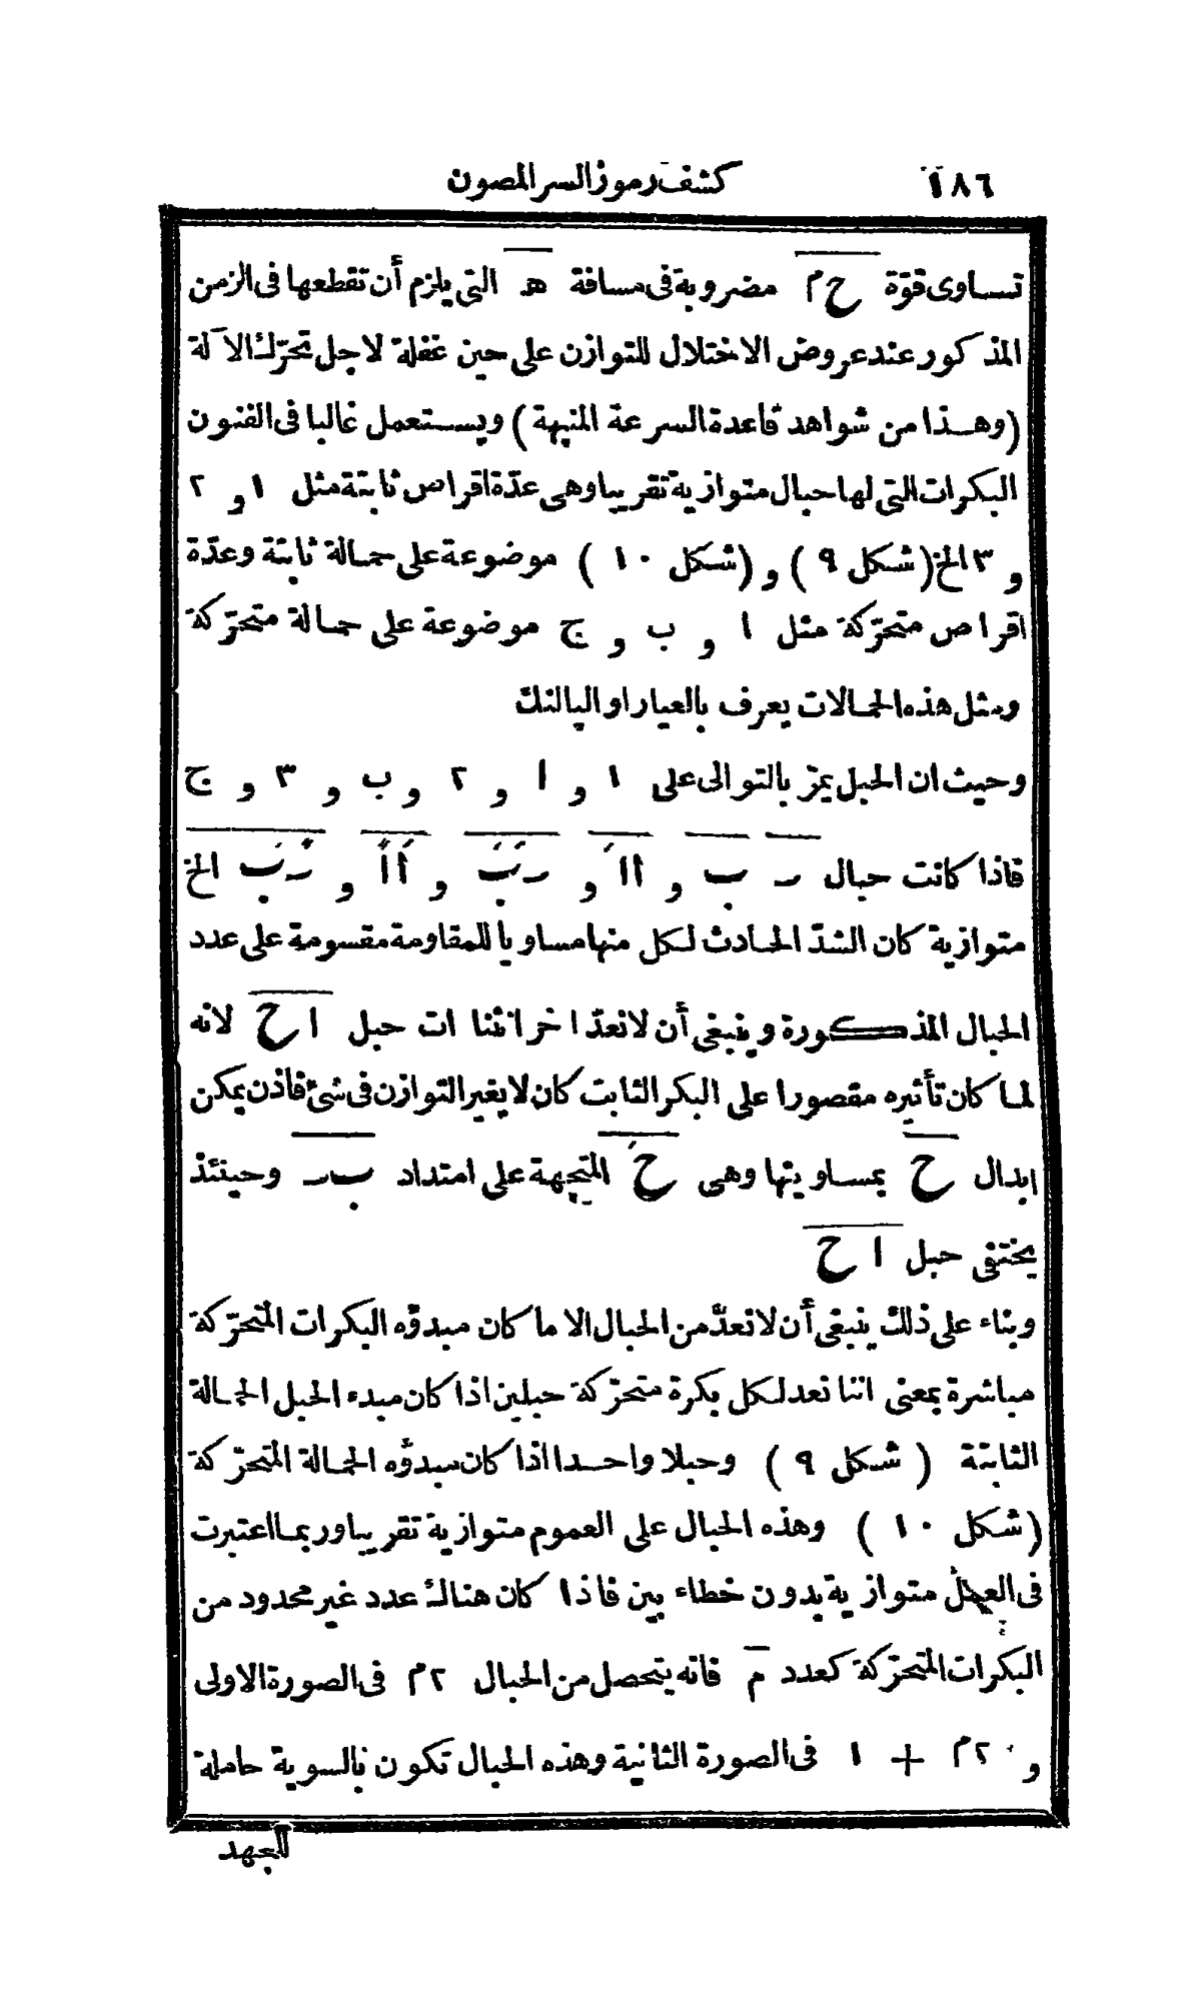 ١٨٦ كشف رموز السر المصون
تساوى قوّة ح م مضروبة فى مسافة ه التى يلزم أن تقطعها فى الزمن
المذكور عند عروض الاختلال للتوازن على حين غفلة لاجل تحرّك الآلة
(وهذا من شواهد قاعدة السرعة المنبهة) ويستعمل غالبا فى الفنون
البكرات التى لها حبال متوازية تقريبا وهى عدّة اقراص ثابتة مثل ١ و ٢
و ٣ الخ (شكل ٩) و (شكل ١٠) موضوعة على حمالة ثابتة وعدّة
اقراص متحرّكة مثل ا و ب و ج موضوعة على حمالة متحرّكة
ومثل هذه الحمالات يعرف بالعيار او البالنك
وحيث ان الحبل يمرّ بالتوالى على ١ و ا و ٢ و ب و ٣ و ج
فاذا كانت حبال ر ب و اا و رَبَ و أأ و رً بً الخ
متوازية كان الشدّ الحادث لكل منها مساويا للمقاومة مقسومة على عدد
الحبال المذكورة وينبغى أن لا نعدّ اخر انثناات حبل ا ح لانه
لما كان تأثيره مقصورا على البكر الثابت كان لا يغير التوازن فى شئ فاذن يمكن
ابدال ح بمساويتها وهى حَ المتجهة على امتداد ب ر وحينئذ
يختفى حبل ا ح
وبناء على ذلك ينبغى أن لا نعدّ من الحبال الا ما كان مبدؤه البكرات المتحرّكة
مباشرة بمعنى اننا نعد لكل بكرة متحرّكة حبلين اذا كان مبدء الحبل الحمالة
الثابتة (شكل ٩) وحبلا واحدا اذا كان مبدؤه الحمالة المتحرّكة
(شكل ١٠) وهذه الحبال على العموم متوازية تقريبا وربما اعتبرت
فى العمل متوازية بدون خطاء بين فاذا كان هناك عدد غير محدود من
البكرات المتحرّكة كعدد م فانه يتحصل من الحبال ٢م فى الصورة الاولى
و ٢م + ١ فى الصورة الثانية وهذه الحبال تكون بالسوية حاملة
للجهد